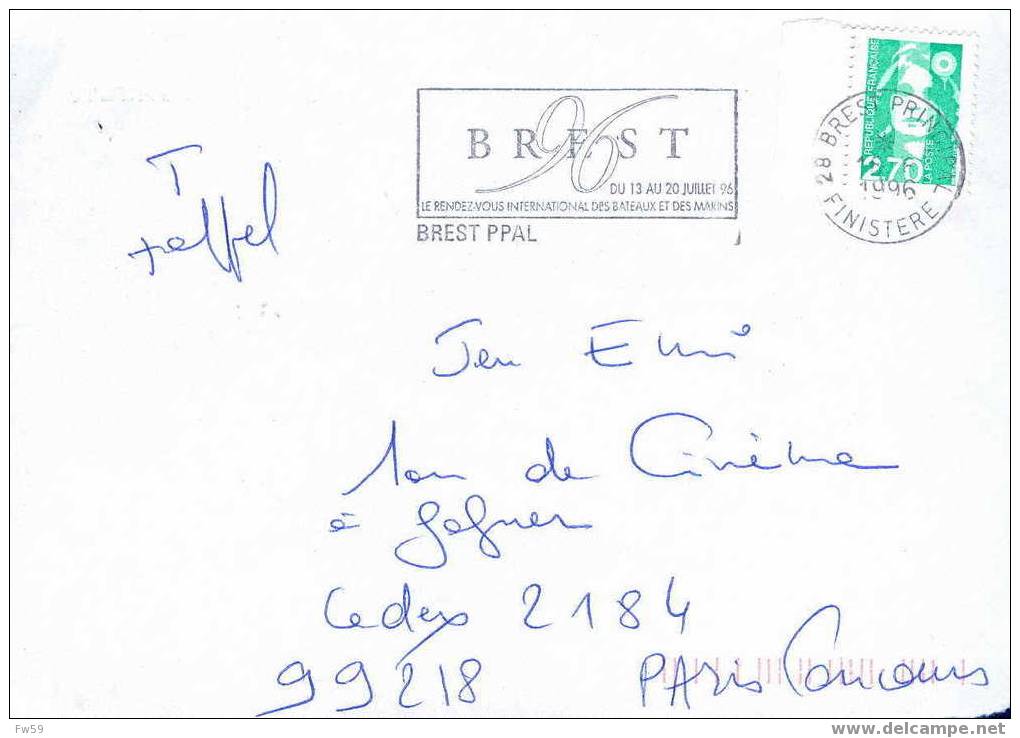 BREST
96
DU 13 AU 20 JUILLET 96
LE RENDEZ-VOUS INTERNATIONAL DES BATEAUX ET DES MARINS
BREST PPAL
REPUBLIQUE FRANÇAISE
LA POSTE
2,70
28 BREST PRINCIPAL
1996
FINISTERE
T
Jeu
1 an de Cinéma
à gagner
Cedex 2184
99218 PAris Concours
Fw59
www.delcampe.net